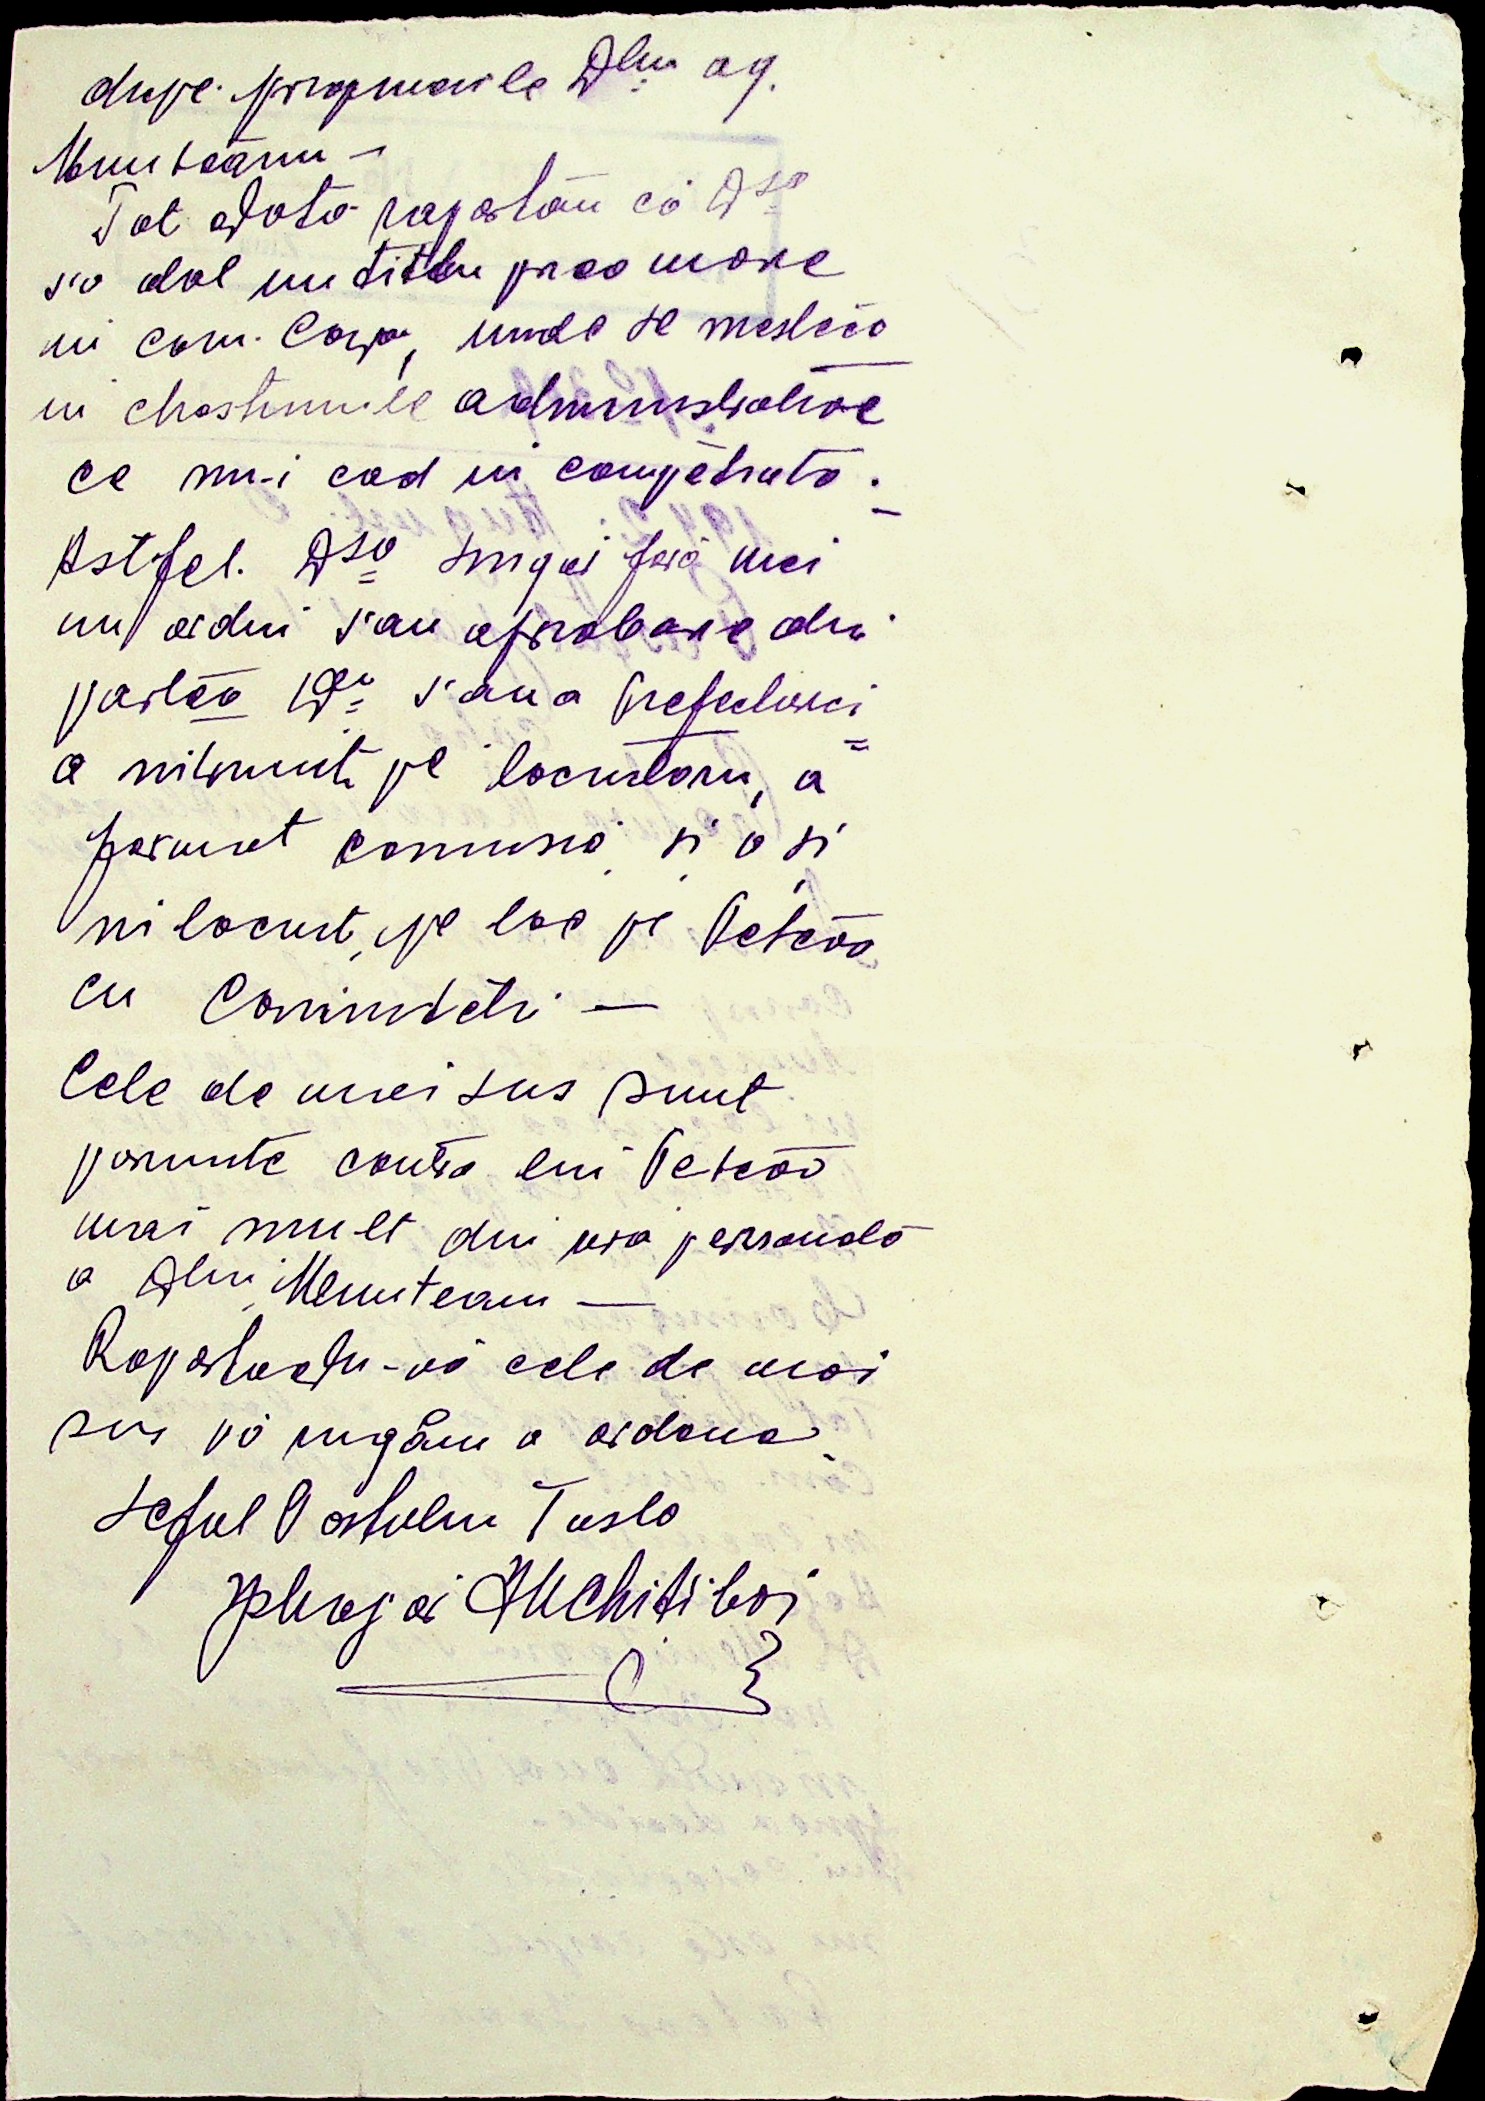 dupe. propunerile Dlui ag.
Munteanu –
Tot odată raportăm că Dsa
s'a dat un titlu prea mare
în com. unde se mestecă
în chestiunile administrative
ce nu-i cad în competență.
Astfel. Dsa singur fără nici
un ordin s'au aprobare din
partea Dv. s'au a Prefecturei
a întrunit pe locuitori, a
format comisia și a și
înlocuit, pe loc pe Petrea
cu
Cele de mai sus sunt
pornite contra lui Petrea
mai mult din ura personală
a Dlui Munteanu —
Raportându-vă cele de mai
sus vă rugăm a ordona
Șeful Postului Taslo
Plutonier Chitiboi